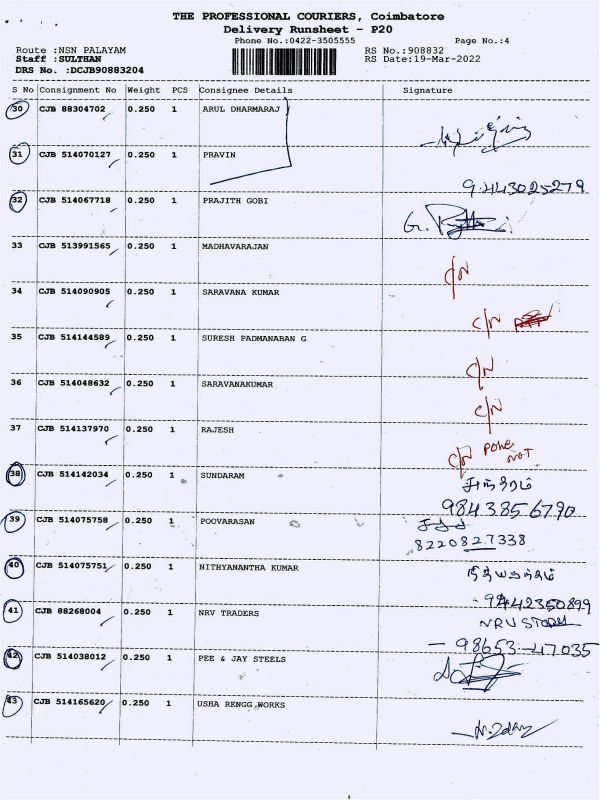 THE PROFESSIONAL COURIERS, Coimbatore
Delivery Runsheet - P20
Phone No.:0422-3505555 Page No.:4
Route :NSN PALAYAM RS No.:908832
Staff :SULTHAN RS Date:19-Mar-2022
DRS No. :DCJB90883204
S No Consignment No Weight PCS Consignee Details Signature
30 CJB 88304702 0.250 1 ARUL DHARMARAJ
31 CJB 514070127 0.250 1 PRAVIN
9.443025279
32 CJB 514067718 0.250 1 PRAJITH GOBI
33 CJB 513991565 0.250 1 MADHAVARAJAN C/N
34 CJB 514090905 0.250 1 SARAVANA KUMAR C/N
35 CJB 514144589 0.250 1 SURESH PADMANABAN G C/N
36 CJB 514048632 0.250 1 SARAVANAKUMAR C/N
37 CJB 514137970 0.250 1 RAJESH C/N
38 CJB 514142034 0.250 1 SUNDARAM
9843856790
39 CJB 514075758 0.250 1 POOVARASAN
8220827338
40 CJB 514075751 0.250 1 NITHYANANTHA KUMAR
9442350899
41 CJB 88268004 0.250 1 NRV TRADERS
98653-47035
42 CJB 514038012 0.250 1 PEE & JAY STEELS
43 CJB 514165620 0.250 1 USHA RENGG WORKS